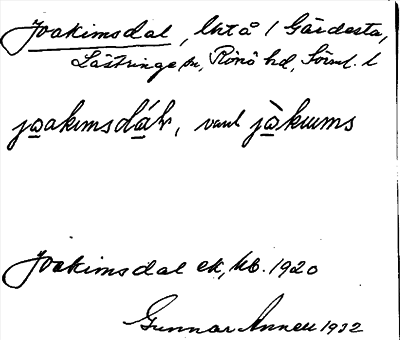 Joakimsdal, lht å / Gärdesta,
Lästringe sn, Rönö hd, Söml. l
joakimsdál, vanl jàkums
Joakimsdal ek, kb. 1920
Gunnar Annell 1932